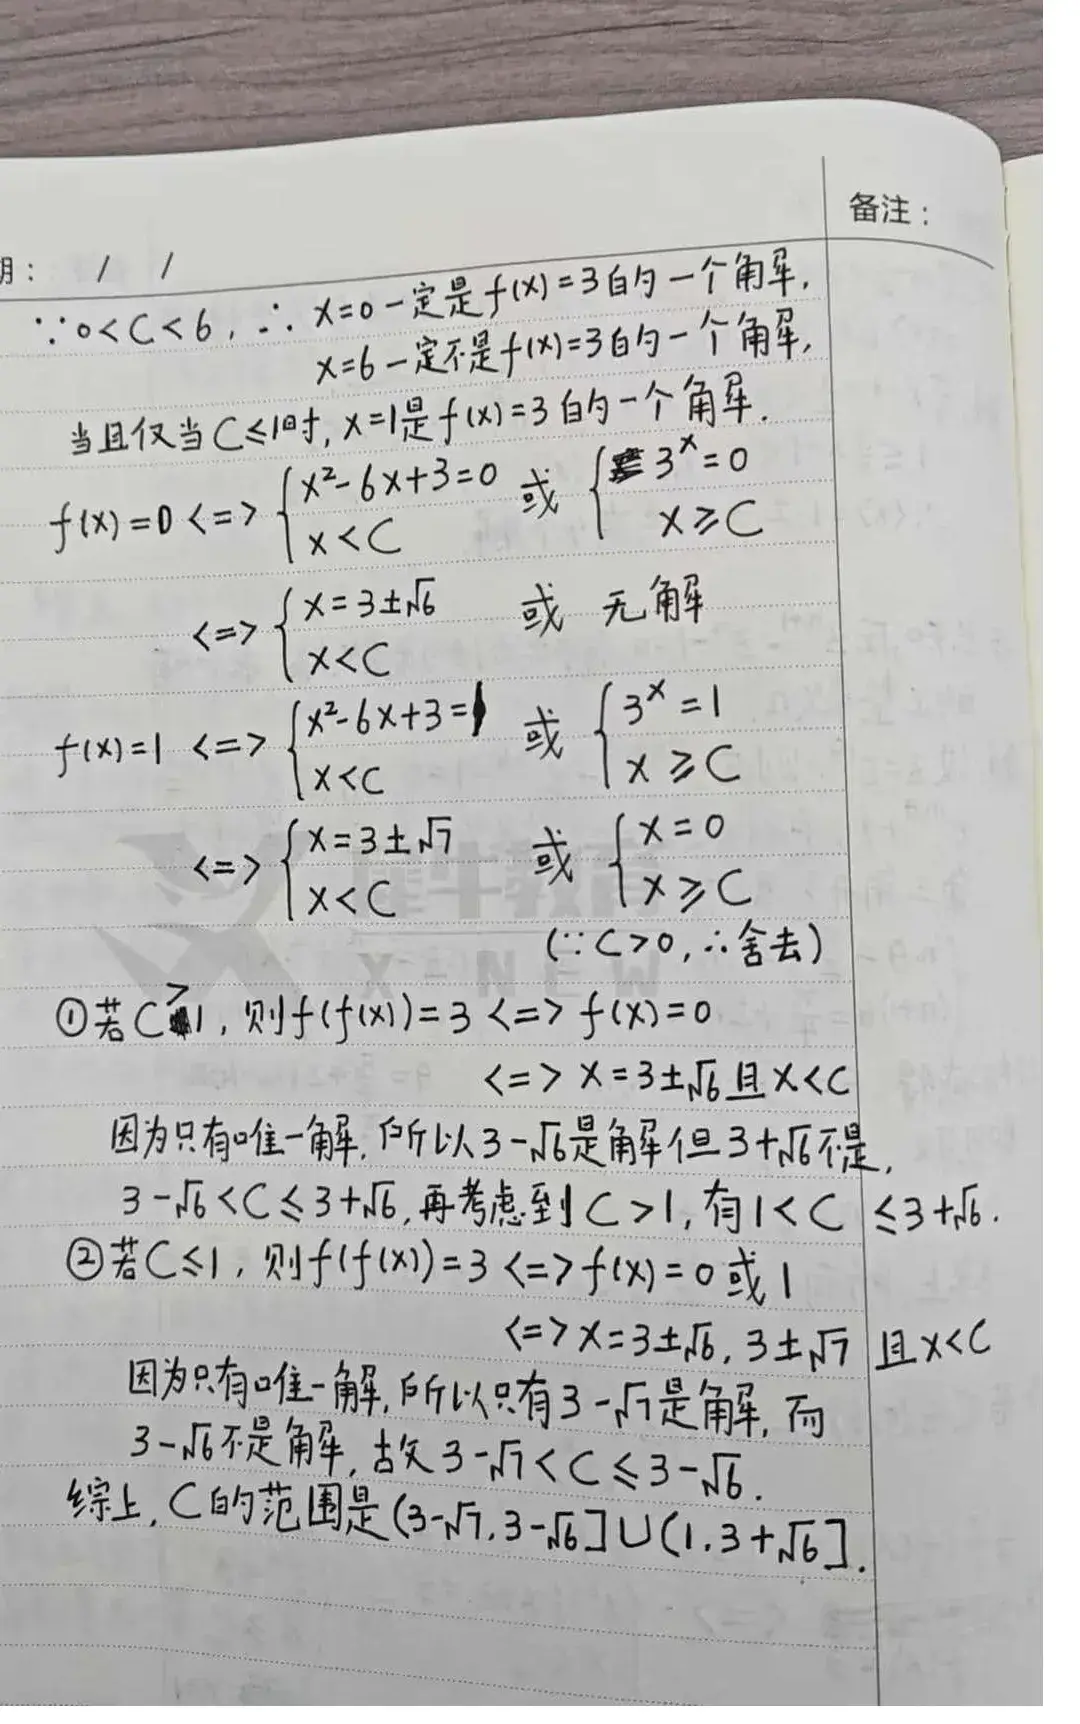 备注：
期： / /
∵0<C<6, ∴ x=0一定是f(x)=3的一个解,
x=6一定不是f(x)=3的一个解,
当且仅当C≤1时, x=1是f(x)=3的一个解.
f(x)=0 <=> { x²-6x+3=0 或 { 3ˣ=0
x<C x≥C
<=> { x=3±√6 或 无解
x<C
f(x)=1 <=> { x²-6x+3=1 或 { 3ˣ=1
x<C x≥C
<=> { x=3±√7 或 { x=0
x<C x≥C
(∵C>0, ∴舍去)
犀牛教育
X-NEW
①若C>1, 则f(f(x))=3 <=> f(x)=0
<=> x=3±√6且x<C
因为只有唯一解, 所以3-√6是解但3+√6不是,
3-√6<C≤3+√6, 再考虑到C>1, 有1<C≤3+√6.
②若C≤1, 则f(f(x))=3 <=> f(x)=0或1
<=> x=3±√6, 3±√7 且x<C
因为只有唯一解, 所以只有3-√7是解, 而
3-√6不是解, 故3-√7<C≤3-√6.
综上, C的范围是(3-√7, 3-√6]∪(1, 3+√6].